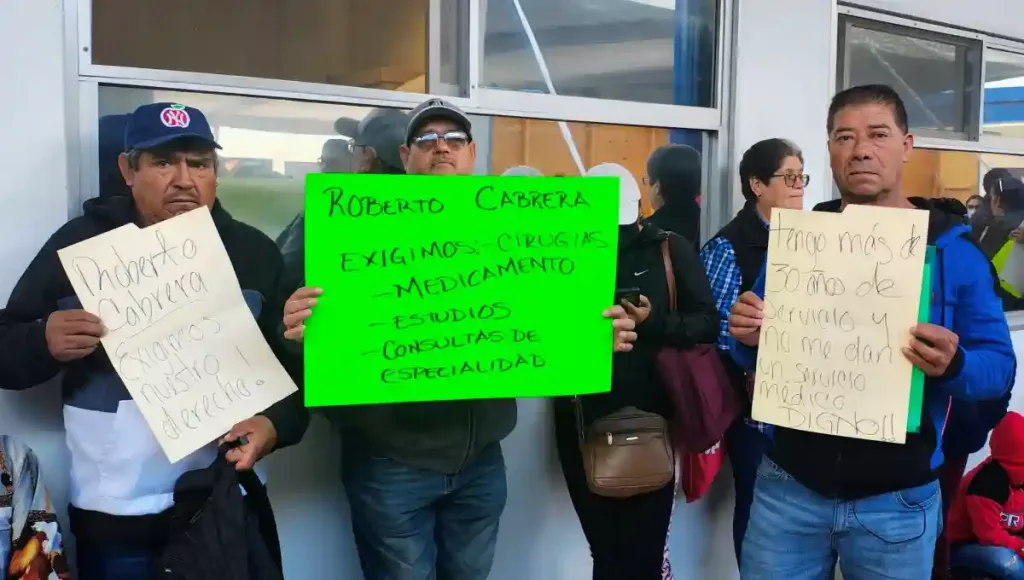 Rhoberto
Cabrera
Exigimos
nuistro
derecho!
ROBERTO CABRERA
EXIGIMOS:- CIRUGIAS
- MEDICAMENTO
- ESTUDIOS
- CONSULTAS DE
ESPECIALIDAD
tengo más de
30 años de
servicio y
no me dan
un servicio
médico
DIGNO!!
NY
PR